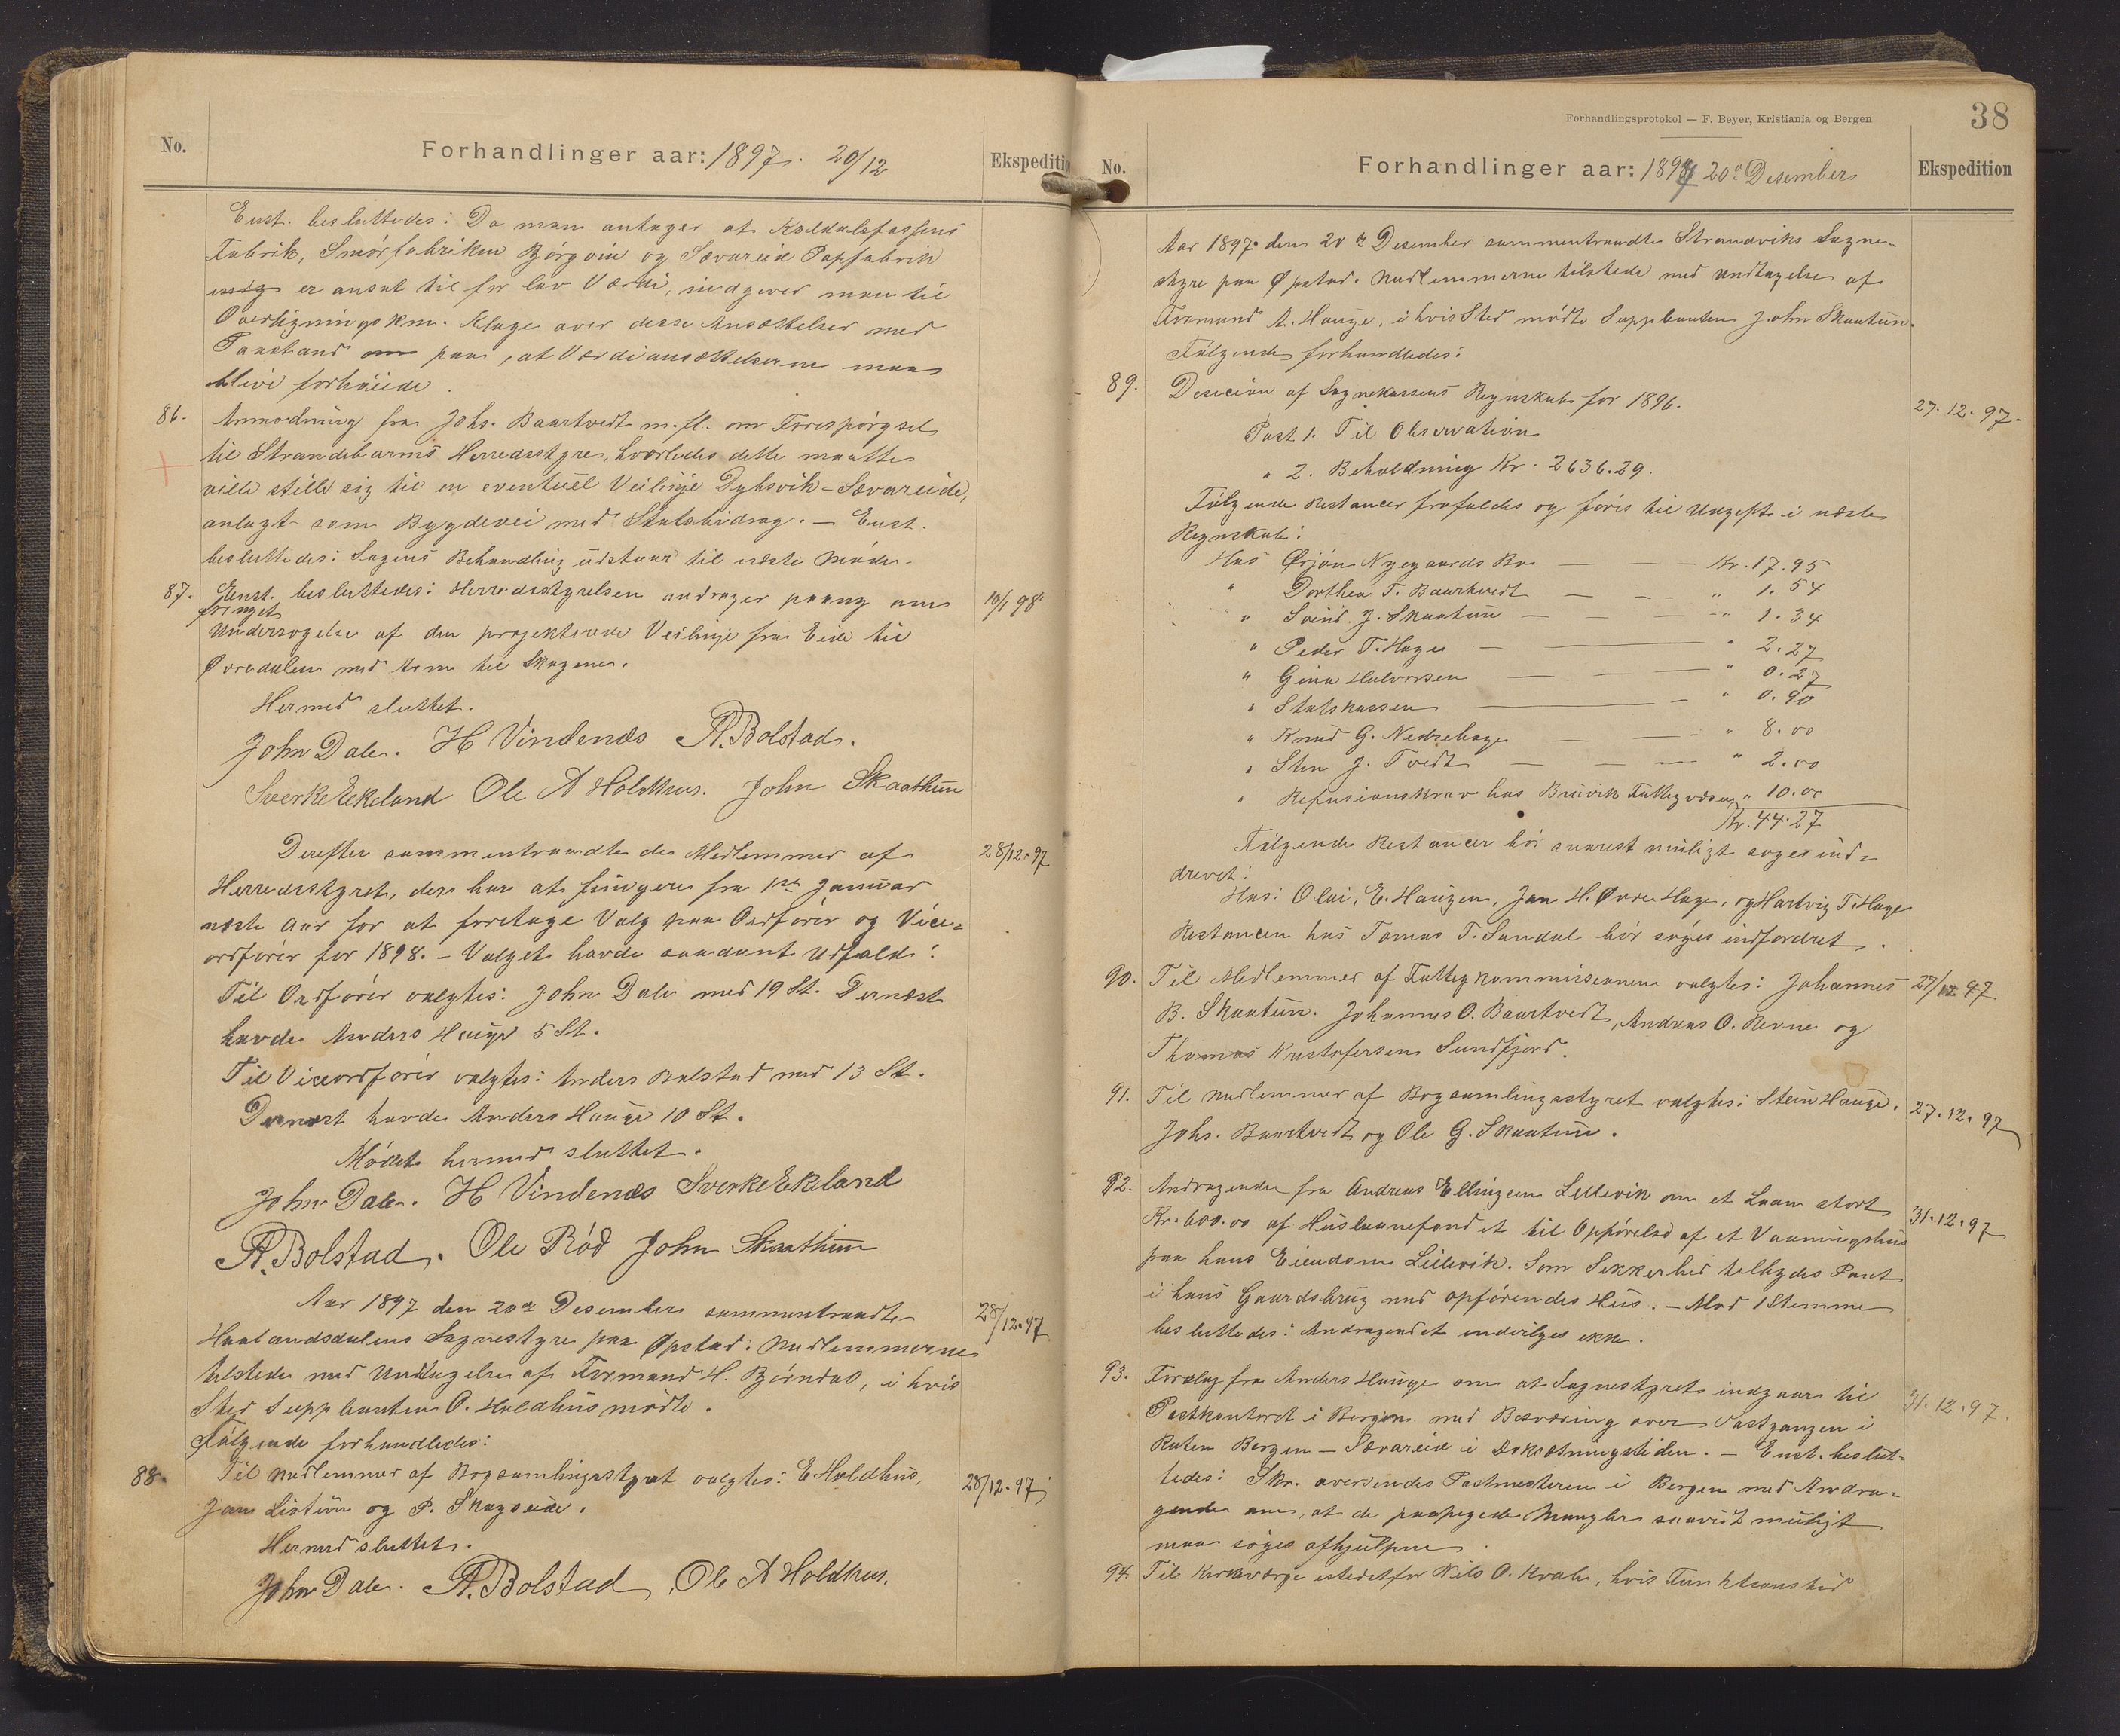 No.
Forhandlinger aar: 1897. 20/12
Ekspediti
Enst. besluttedes: Da man antager at
Fabrik, Smørfabriken Bjørgvin og Sævareid Papfabrik
er ansat til for lav Værdi, indgiver man til
Overligningskm. Klage over disse Ansættelser med
Paastand om paa, at Værdiansættelserne maa
blive forhøiede.
86. Anmodning fra Johs. Baartvedt m. fl. om Forespørgsel
til Strandebarms Herredsstyre, hvorledes dette maatte
ville stille sig til en eventuel Veilinje Dyksvik - Sævareide,
anlagt som Bygdevei med Statsbidrag. — Enst.
besluttedes: Sagens Behandling udstaar til næste Møde.
87. Enst. besluttedes: Herredsstyrelsen andrager paany om 10/1 98.
tvinget
Undersøgelse af den projekterede Veilinje fra Eide til
Øvredalen med Arm til Skogene.
Hermed sluttet.
John Dale. H Vindenes A. Bolstad.
Sverke Eikeland Ole A Holdhus. John Skaathun
Derefter sammentraadte de Medlemmer af 28/12.97
Herredsstyret, der har at fungere fra 1ste Januar
næste Aar for at foretage Valg paa Ordfører og Vice-
ordfører for 1898. – Valget havde saadant Udfald:
Til Ordfører valgtes: John Dale med 19 St. Dernæst
havde Anders Hauge 5 St.
Til Viceordfører valgtes: Anders Bolstad med 13 St.
Dernæst havde Anders Hauge 10 St.
Mødet hermed sluttet.
John Dale. H Vindenes Sverke Eikeland
A. Bolstad. Ole Rød John Skaathun
Aar 1897 den 20de Desember sammentraadte 28/12.97
Haalandsdalens Sognestyre paa Øpstad. Medlemmerne
tilstede med Undtagelse af Formand H. Bjørndal, i hvis
Sted Suppleanten O. Holdhus mødte.
Følgende forhandledes:
88. Til Medlemmer af Bogsamlingsstyret valgtes: E Holdhus, 28/12.97
Jan Listun og P. Skogseide.
Hermed sluttet.
John Dale. A. Bolstad, Ole A Holdhus.
Forhandlingsprotokol — F. Beyer, Kristiania og Bergen
38
No.
Forhandlinger aar: 1897 20de Desember
Ekspedition
Aar 1897. den 20de Desember sammentraadte Strandviks Sogne-
styre paa Øpstad. Medlemmerne tilstede med Undtagelse af
Formand A. Hauge, i hvis Sted mødte Suppleanten John Skaatun.
Følgende forhandledes:
89. Desicion af Sognekassens Regnskab for 1896. 27.12.97.
Post 1. Til Observation
" 2. Beholdning Kr. 2636.29.
Følgende Restancer frafaldes og føres til Udgift i næste
Regnskab:
Hos Ørjan Nygaards Bo — — — Kr. 17.95
" Dorthea T. Baartvedt — — — " 1.54
" Svend J. Skaatun — — — " 1.34
" Peder T. Hage — — — " 2.27
" Gina Halvorsen — — — " 0.27
" Statskassen — — " 0.90
" Knud G. Nedrehage — — " 8.00
" Sten J. Tvedt — — — " 2.00
" Refusionskrav hos Bruvik Fattigvæsen " 10.00
Kr. 44.27
Følgende Restancer bør snarest muligt søges ind-
drevet:
Hos: Olai E. Haugen, Jan H. Øvre Hage, og Hartvig T. Hage
Restancen hos Tomas T. Sandal bør søges indfordret.
90. Til Medlemmer af Fattigkommissionen valgtes: Johannes 27/12 97
B. Skaatun. Johannes O. Baartvedt, Andreas O. Revne og
Thomas Kristofersen Sundfjord.
91. Til Medlemmer af Bogsamlingsstyret valgtes: Stein Hauge. 27.12.97
Johs. Baartvedt og Ole G. Skaatun.
92. Andragende fra Andreas Ellingsen Lillevik om et Laan stort 31.12.97
Kr. 600.00 af Huslaanefondet til Opførelse af et Vaaningshus
paa hans Eiendom Lillevik. Som Sikkerhed tilbydes Pant
i hans Gaardsbrug med opførendes Hus. – Mod 1 Stemme
besluttedes: Andragendet indvilges ikke.
93. Forslag fra Anders Hauge om at Sognestyret indgaar til 31.12.97.
Postkontoret i Bergen med Besværing over Postgangen i
Ruten Bergen – Sævareid i Dokætningstiden. – Enst. beslut-
tedes: Skr. oversendes Postmesteren i Bergen med Andra-
gende om, at de paapegede Mangler saavidt muligt
maa søges afhjulpne.
94. Til Kirkeværge istedetfor Nils O. Kvale, hvis Funktionstid